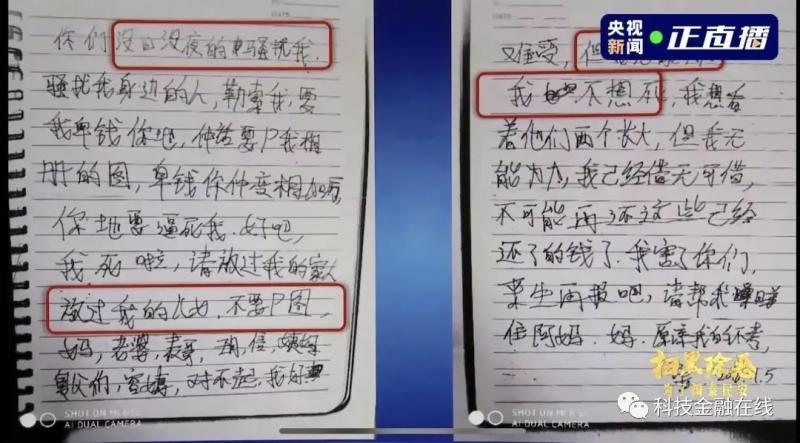 央视新闻 正直播
DATE
你们没日没夜的骚扰我.
骚扰我身边的人,勒索我,要
我卑钱你地,仲话要P我相
册的图,卑钱你仲变相加
你地要逼死我.好吧,
我死啦,请放过我的家人
放过我的 不要P图,
妈,老婆,表哥,
舅父们, 对不起,我好
SHOT ON MI 8 SE
AI DUAL CAMERA
难受,但
我 不想死,我想看
着他们两个长大,但我无
能为力,我已经借无可借,
不可能再还这些已经
还了的钱了.我害了你们,
来生再报吧,请帮我
住阿妈.妈.原谅我的不孝,
1.5
扫黑除恶
SHOT ON MI
AI DUAL CAMERA
科技金融在线